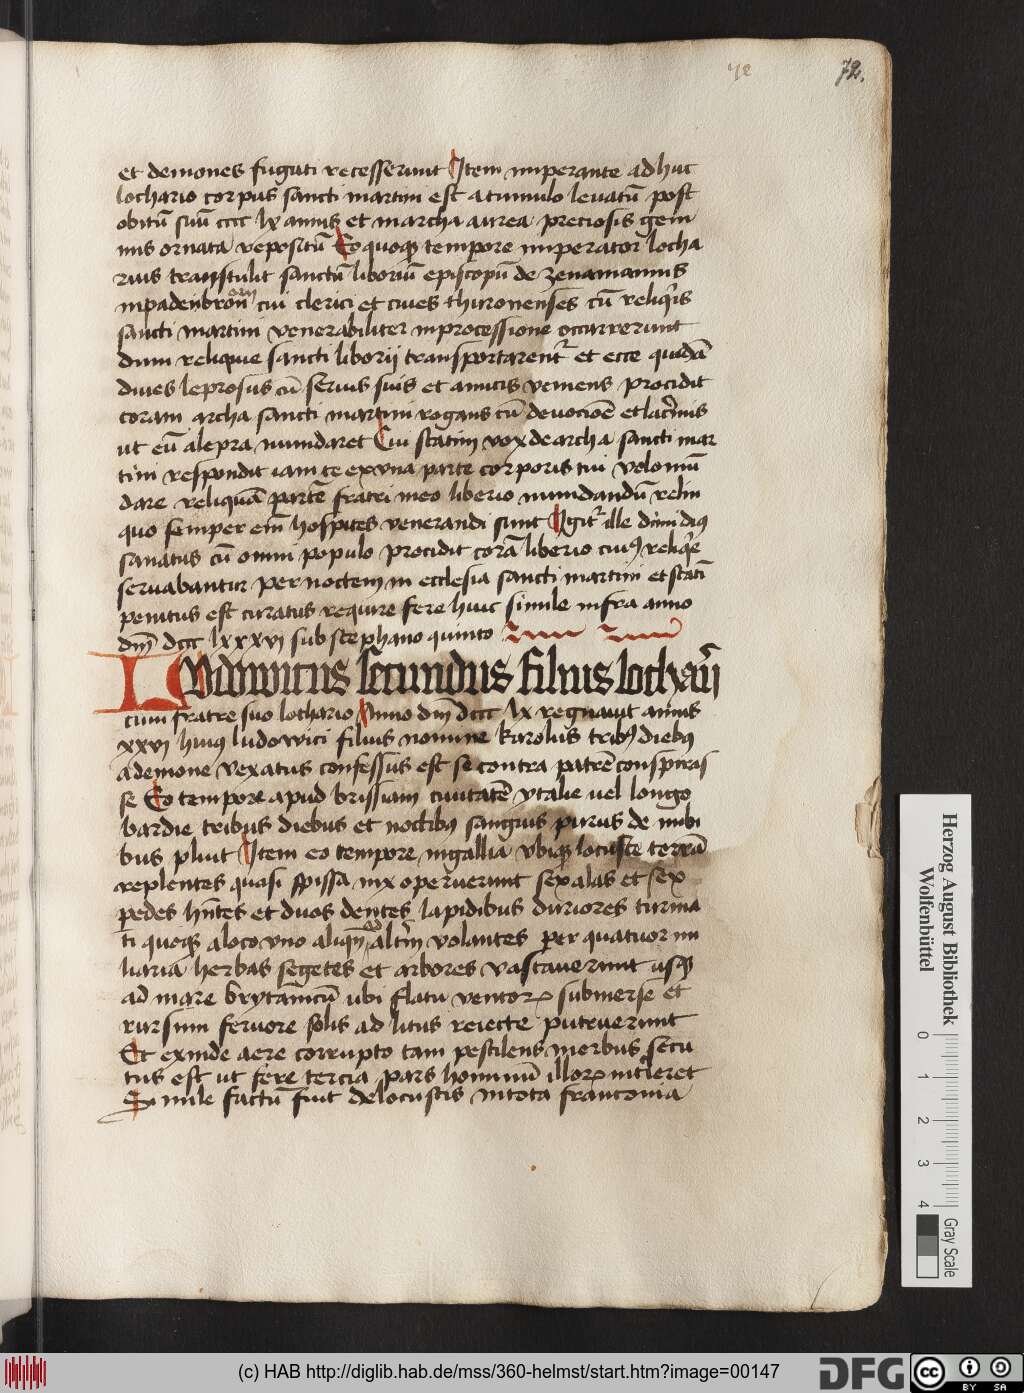 72.
et demones fugati recesserunt Item imperante adhuc
lothario corpus sancti martini est a tumulo leuatū post
obitū suū cccc lx annis et in archa aurea preciosis gem
mis ornata repositū Eo quoqꝫ tempore imperator lotha
rius transtulit sanctū liboriū episcopū de zenamannis
in padenbronm̄ cui clerici et ciues thuronenses cū reliqͥs
sancti martini venerabiliter in processione occurrerunt
dum reliquie sancti liborij transportarentᷣ et ecce quidā
diues leprosus cū seruis suis et amicis veniens procidit
coram archa sancti martini rogans cū deuocioē et lacͥmis
ut eū a lepra mundaret Cui statim vox de archa sancti mar
tini respondit iam te ex vna parte corporis tui volo mū
dare reliquā partē fratri meo liberio mundandū relin
quo semper em̄ hospites venerandi sunt Igitᷣ ille dimidiꝰ
sanatus cū omni populo procidit corā liberio cuiꝰ reliqͥe
seruabantur per noctem in ecclesia sancti martini et statī
penitus est curatus require fere huic simile infra anno
dn̄i dccc lxxxvj sub stephano quinto
LUdowicus secundus filius lotharij
cum fratre suo lothario Anno dn̄i dccc lx regnauit annis
xxvj huiꝰ ludowici filius nomine karolus tribꝰ diebꝰ
a demone vexatus confessus est se contra patrē conspiras
se Eo tempore apud brissiam ciuitatē ytalie uel longo
bardie tribus diebus et noctibꝰ sangwis purus de nubi
bus pluit Item eo tempore in gallia vbiqꝫ locuste terrā
replentes quasi spissa nix operuerunt sex alas et sex
pedes hn̄tes et duos dentes lapidibus duriores turma
ti quoqꝫ a loco vno aliqn̄ altͥm volantes per quatuor mi
liaria herbas segetes et arbores vastauerunt usqꝫ
ad mare brytanicū ubi flatu ventoꝝ submerse et
rursum feruore solis ad litus reiecte putruerunt
Et exinde aere corrupto tam pestilens morbus secu
tus est ut fere tercia pars hominū illoꝝ interiret
Simile factū fuit de locustis in tota franconia
Herzog August Bibliothek
Wolfenbüttel
0 1 2 3 4
Gray Scale
(c) HAB http://diglib.hab.de/mss/360-helmst/start.htm?image=00147
DFG
cc BY SA